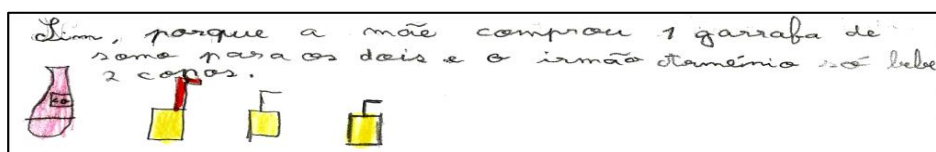 Sim, porque a mãe comprou 1 garrafa de
somo para os dois e o irmão Arménio só bebe
2 copos.